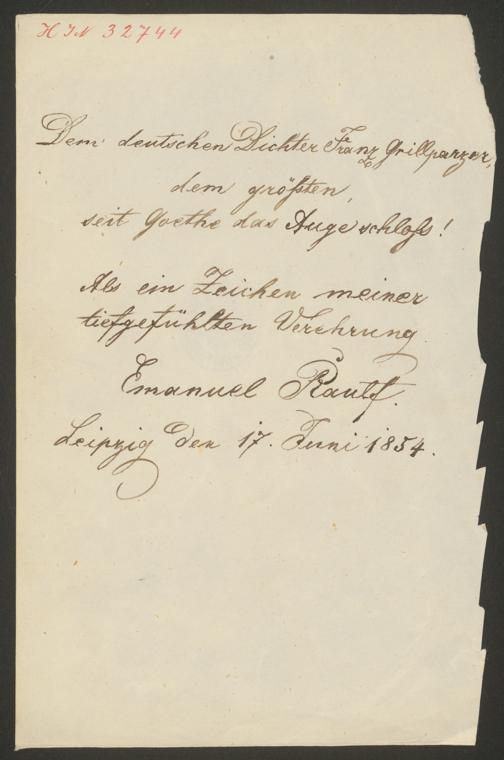 H I N 32744
Dem deutschen Dichter Franz Grillparzer,
dem größten,
seit Goethe das Auge schloß!
Als ein Zeichen meiner
tiefgefühlten Verehrung
Emanuel
Leipzig den 17. Juni 1854.